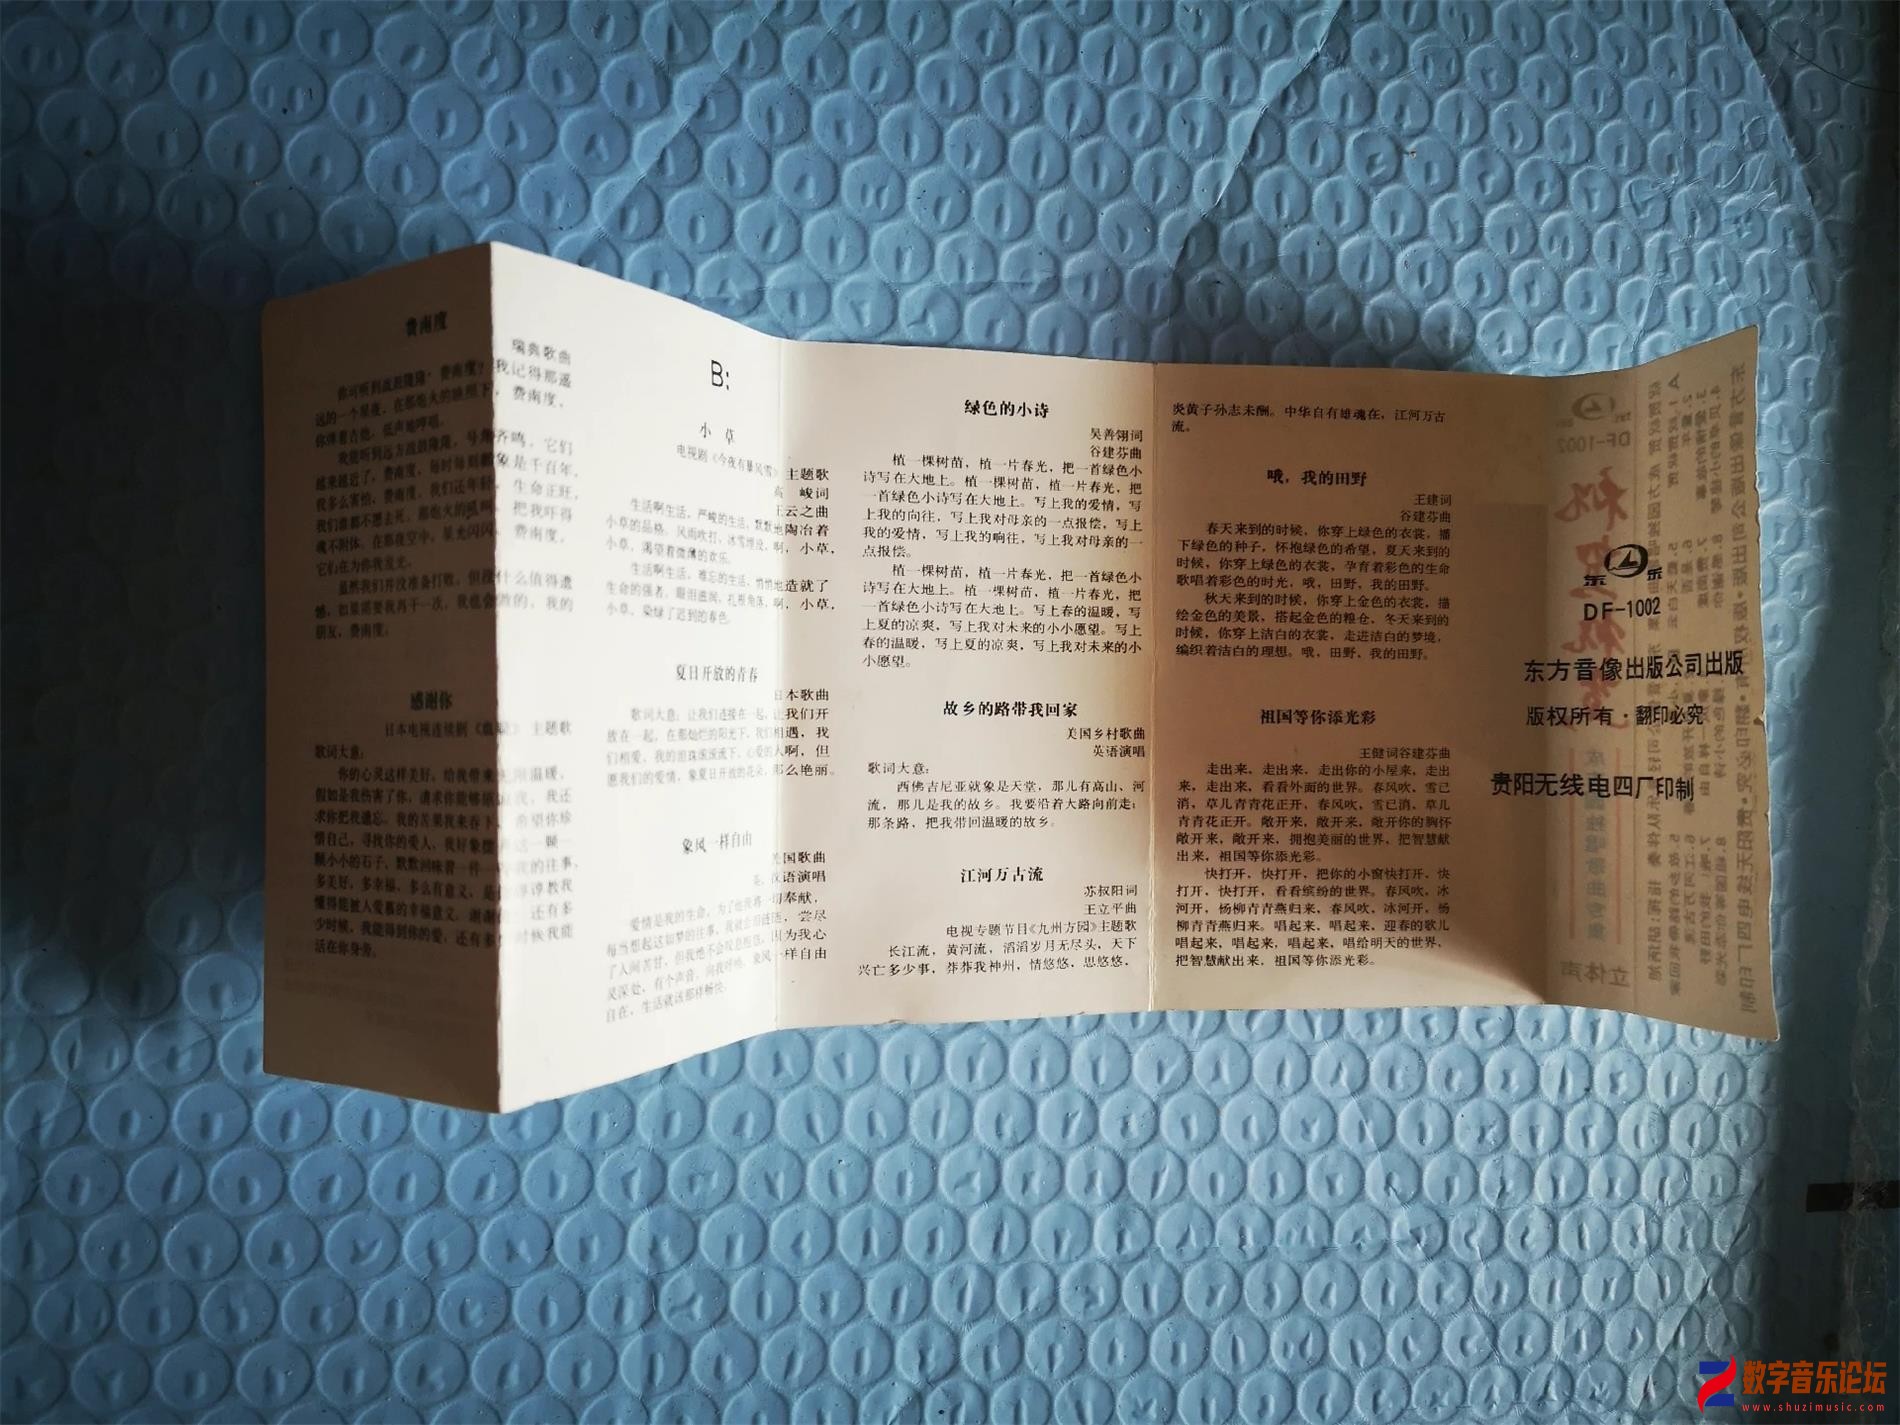 费南度
瑞典歌曲
你可听到战鼓隆隆,费南度?我记得那遥
远的一个星夜,在那炮火的映照下,费南度,
你弹着吉他,低声地哼唱。
我能听到远方战鼓隆隆,号角齐鸣,它们
越来越近了,费南度,每时每刻都象是千百年,
我多么害怕、费南度。我们还年轻,生命正旺,
我们谁都不想去死。那炮火的吼叫,把我吓得
魂不附体。在那夜空中,星光闪闪,费南度,
它们在为你我发光。
虽然我们并没准备打败,但没什么值得遗
憾,如果需要我再干一次,我也会的,我的
朋友,费南度。
感谢你
日本电视连续剧 主题歌
歌词大意:
你的心灵这样美好,给我带来无限温暖,
假如是我伤害了你,请求你能够原谅我,我还
求你把我遗忘。我的苦果我来吞下,希望你珍
惜自己,寻找你的爱人,我好象 这一颗
颗小小的石子,默默回味着一件 我的往事,
多美好,多幸福,多么有意义,是 谆谆教我
懂得能被人爱慕的幸福意义,谢谢 还有多
少时候,我能得到你的爱,还有多少时候我能
活在你身旁。
B:
小草
电视剧《今夜有暴风雪》主题歌
高峻词
王云之曲
生活啊生活,严峻的生活,默默地陶冶着
小草的品格。风雨吹打,冰雪埋没,啊,小草,
小草,渴望着微薄的欢乐。
生活啊生活,难忘的生活,悄悄地造就了
生命的强者,眼泪滋润,扎根角落,啊,小草,
小草,染绿了迟到的春色。
夏日开放的青春
日本歌曲
歌词大意:让我们连接在一起,让我们开
放在一起,在那灿烂的阳光下,我们相遇,我
们相爱,我的泪珠滚滚流下,心爱的人啊,但
愿我们的爱情,象夏日开放的花朵,那么艳丽。
象风一样自由
美国歌曲
英、汉语演唱
爱情是我的生命,为了他我将一切奉献,
每当想起这如梦的往事,我就会泪涟涟,尝尽
了人间苦甘,但我绝不会叹息抱怨,因为我心
灵深处,有个声音,向我呼唤,象风一样自由
自在,生活就该那样畅快。
绿色的小诗
吴善翎词
谷建芬曲
植一棵树苗,植一片春光,把一首绿色小
诗写在大地上。植一棵树苗,植一片春光,把
一首绿色小诗写在大地上。写上我的爱情,写
上我的向往,写上我对母亲的一点报偿,写上
我的爱情,写上我的响往,写上我对母亲的一
点报偿。
植一棵树苗,植一片春光,把一首绿色小
诗写在大地上。植一棵树苗,植一片春光,把
一首绿色小诗写在大地上。写上春的温暖,写
上夏的凉爽,写上我对未来的小小愿望。写上
春的温暖,写上夏的凉爽,写上我对未来的小
小愿望。
故乡的路带我回家
美国乡村歌曲
英语演唱
歌词大意:
西佛吉尼亚就象是天堂,那儿有高山、河
流,那儿是我的故乡。我要沿着大路向前走;
那条路,把我带回温暖的故乡。
江河万古流
苏叔阳词
王立平曲
电视专题节目《九州方园》主题歌
长江流,黄河流,滔滔岁月无尽头,天下
兴亡多少事,莽莽我神州,情悠悠,思悠悠,
炎黄子孙志未酬。中华自有雄魂在,江河万古
流。
哦,我的田野
王建词
谷建芬曲
春天来到的时候,你穿上绿色的衣裳,播
下绿色的种子,怀抱绿色的希望,夏天来到的
时候,你穿上绿色的衣裳,孕育着彩色的生命
歌唱着彩色的时光,哦,田野,我的田野。
秋天来到的时候,你穿上金色的衣裳,描
绘金色的美景,搭起金色的粮仓,冬天来到的
时候,你穿上洁白的衣裳,走进洁白的梦境,
编织着洁白的理想。哦,田野,我的田野。
祖国等你添光彩
王健词谷建芬曲
走出来,走出来,走出你的小屋来,走出
来,走出来,看看外面的世界。春风吹,雪已
消,草儿青青花正开,春风吹,雪已消,草儿
青青花正开。敞开来,敞开来,敞开你的胸怀
敞开来,敞开来,拥抱美丽的世界,把智慧献
出来,祖国等你添光彩。
快打开,快打开,把你的小窗快打开,快
打开,快打开,看看缤纷的世界。春风吹,冰
河开,杨柳青青燕归来,春风吹,冰河开,杨
柳青青燕归来。唱起来,唱起来,迎春的歌儿
唱起来,唱起来,唱起来,唱给明天的世界,
把智慧献出来,祖国等你添光彩。
东 乐
DF-1002
东方音像出版公司出版
版权所有·翻印必究
贵阳无线电四厂印制
数字音乐论坛
www.shuzimusic.com